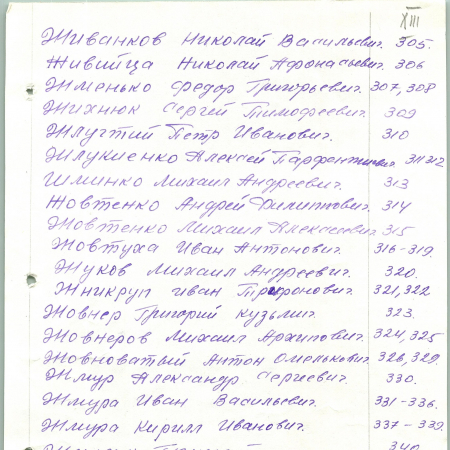 XIII
Живанков Николай Васильевич. 305.
Живийца Николай Афонасьевич. 306
Жменько Федор Григорьевич. 307, 308
Жихнюк Сергей Тимофеевич. 309
Жлугтий Петр Иванович. 310
Жлукиенко Алексей Парфентиевич 311 312
Шминко Михаил Андреевич. 313
Жовтенко Андрей Филиппович. 314
Жовтенко Михаил Алексеевич. 315
Жовтуха Иван Антонович. 316-319.
Жуков Михаил Андреевич. 320.
Жникруп Иван Трифонович. 321, 322
Жовнер Григорий Кузьмич. 323.
Жовнеров Михаил Архипович. 324, 325
Жовноватый Антон Омелькович. 328, 329.
Жмур Александр Сергиевич. 330.
Жмура Иван Васильевич. 331-336.
Жмура Кирилл Иванович. 337-339.
340